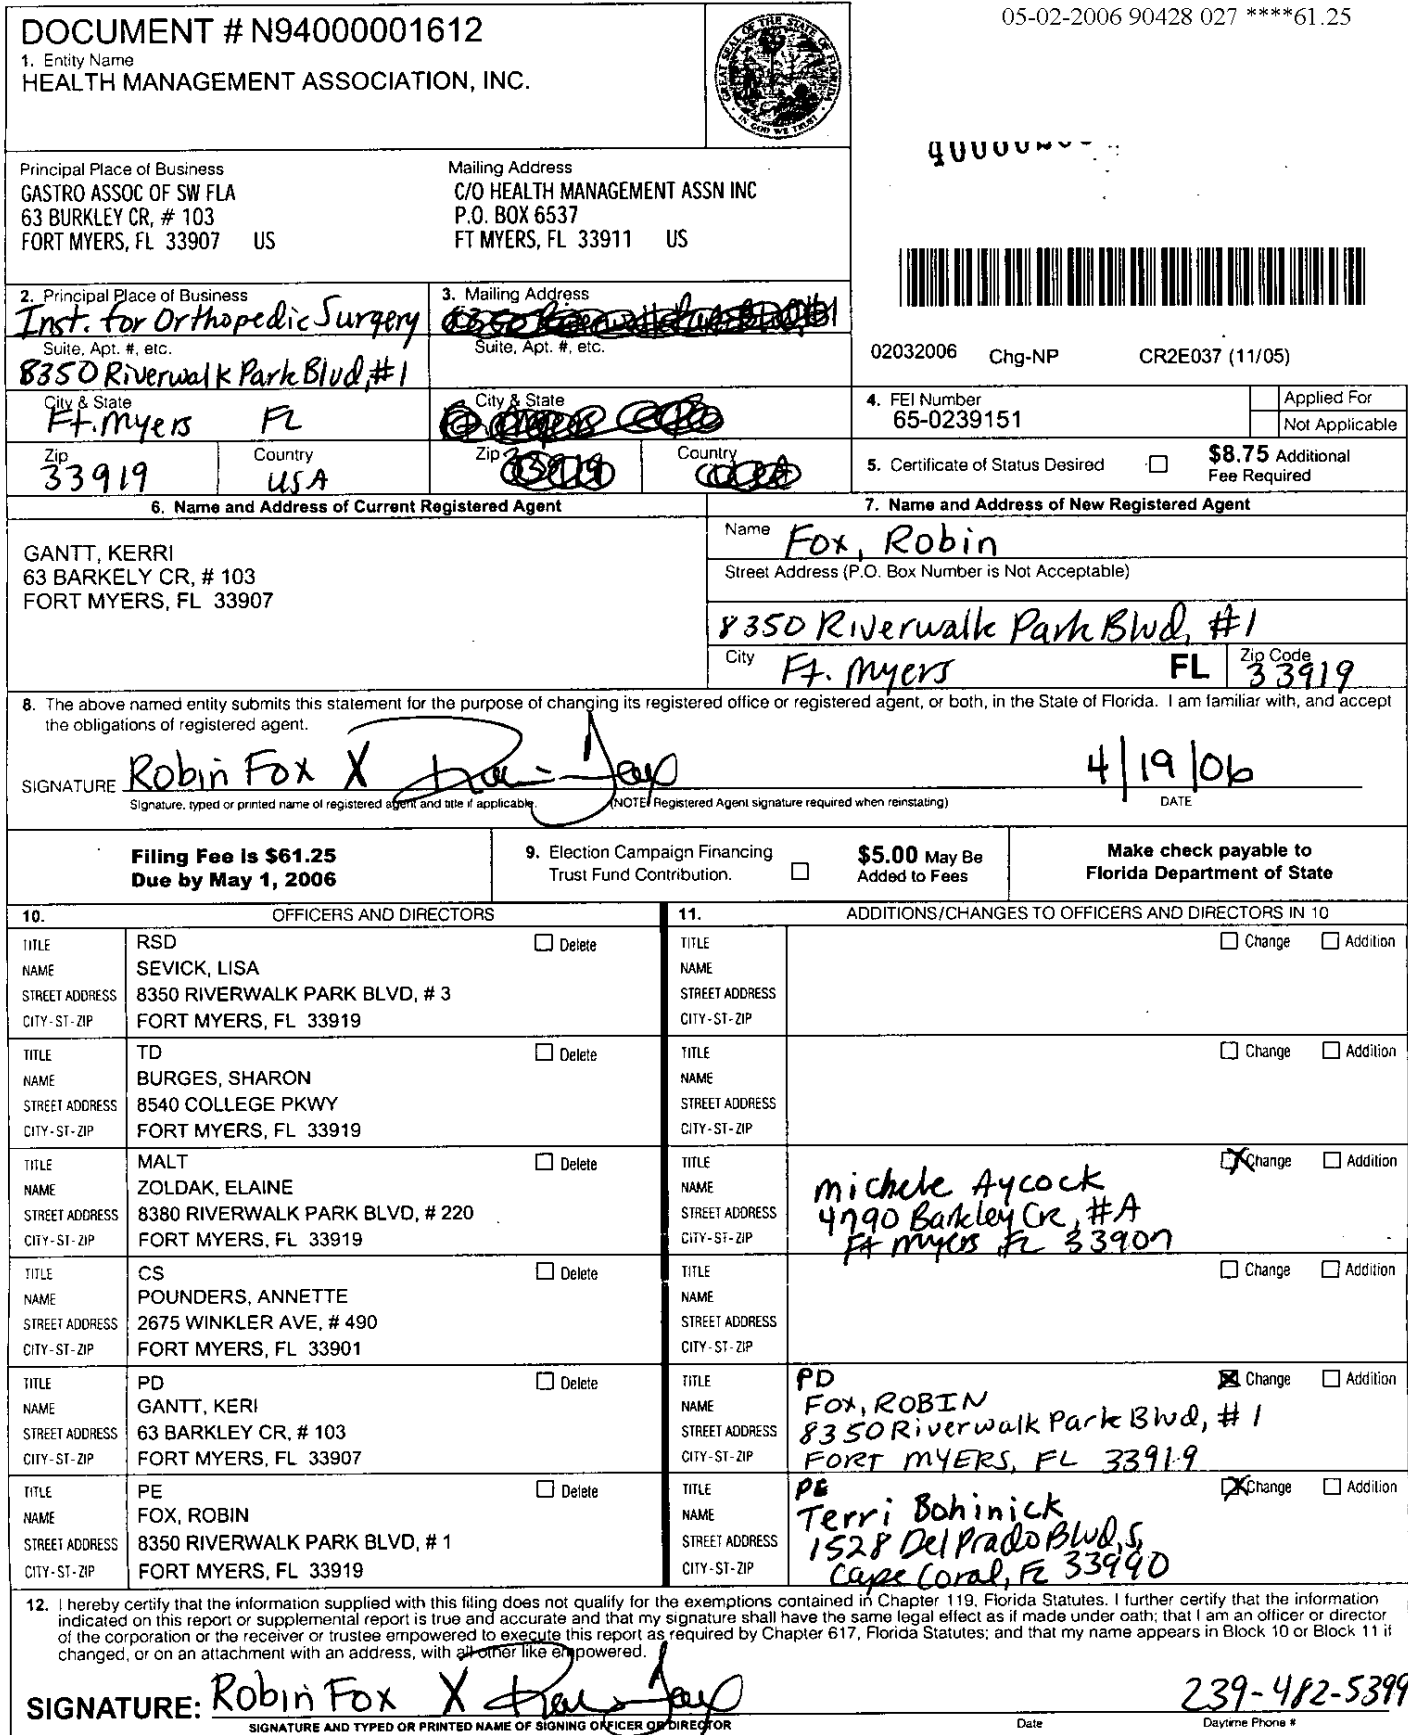 05-02-2006 90428 027 ****61.25
DOCUMENT # N94000001612
1. Entity Name
HEALTH MANAGEMENT ASSOCIATION, INC.
GREAT SEAL OF THE STATE OF FLORIDA
IN GOD WE TRUST
Principal Place of Business
GASTRO ASSOC OF SW FLA
63 BURKLEY CR, # 103
FORT MYERS, FL 33907 US
Mailing Address
C/O HEALTH MANAGEMENT ASSN INC
P.O. BOX 6537
FT MYERS, FL 33911 US
2. Principal Place of Business
Inst. for Orthopedic Surgery
Suite, Apt. #, etc.
8350 Riverwalk Park Blvd, #1
City & State
Ft. Myers FL
Zip
33919
Country
USA
3. Mailing Address
Suite, Apt. #, etc.
City & State
Zip
Country
02032006 Chg-NP CR2E037 (11/05)
4. FEI Number
65-0239151
Applied For
Not Applicable
5. Certificate of Status Desired
$8.75 Additional
Fee Required
6. Name and Address of Current Registered Agent
GANTT, KERRI
63 BARKELY CR, # 103
FORT MYERS, FL 33907
7. Name and Address of New Registered Agent
Name
Fox, Robin
Street Address (P.O. Box Number is Not Acceptable)
8350 Riverwalk Park Blvd, #1
City
Ft. Myers
FL
Zip Code
33919
8. The above named entity submits this statement for the purpose of changing its registered office or registered agent, or both, in the State of Florida. I am familiar with, and accept
the obligations of registered agent.
SIGNATURE Robin Fox X
4/19/06
Signature, typed or printed name of registered agent and title if applicable.
(NOTE: Registered Agent signature required when reinstating)
DATE
Filing Fee is $61.25
Due by May 1, 2006
9. Election Campaign Financing
Trust Fund Contribution.
$5.00 May Be
Added to Fees
Make check payable to
Florida Department of State
10. OFFICERS AND DIRECTORS
11. ADDITIONS/CHANGES TO OFFICERS AND DIRECTORS IN 10
TITLE RSD Delete
NAME SEVICK, LISA
STREET ADDRESS 8350 RIVERWALK PARK BLVD, # 3
CITY-ST-ZIP FORT MYERS, FL 33919
TITLE Change Addition
NAME
STREET ADDRESS
CITY-ST-ZIP
TITLE TD Delete
NAME BURGES, SHARON
STREET ADDRESS 8540 COLLEGE PKWY
CITY-ST-ZIP FORT MYERS, FL 33919
TITLE Change Addition
NAME
STREET ADDRESS
CITY-ST-ZIP
TITLE MALT Delete
NAME ZOLDAK, ELAINE
STREET ADDRESS 8380 RIVERWALK PARK BLVD, # 220
CITY-ST-ZIP FORT MYERS, FL 33919
TITLE X Change Addition
NAME michele Aycock
STREET ADDRESS 4790 Barkley Cr, #A
CITY-ST-ZIP Ft Myers, FL 33907
TITLE CS Delete
NAME POUNDERS, ANNETTE
STREET ADDRESS 2675 WINKLER AVE, # 490
CITY-ST-ZIP FORT MYERS, FL 33901
TITLE Change Addition
NAME
STREET ADDRESS
CITY-ST-ZIP
TITLE PD Delete
NAME GANTT, KERI
STREET ADDRESS 63 BARKLEY CR, # 103
CITY-ST-ZIP FORT MYERS, FL 33907
TITLE PD X Change Addition
NAME FOX, ROBIN
STREET ADDRESS 8350 Riverwalk Park Blvd, # 1
CITY-ST-ZIP FORT MYERS, FL 33919
TITLE PE Delete
NAME FOX, ROBIN
STREET ADDRESS 8350 RIVERWALK PARK BLVD, # 1
CITY-ST-ZIP FORT MYERS, FL 33919
TITLE PE X Change Addition
NAME Terri Bohinick
STREET ADDRESS 1528 Del Prado Blvd, S,
CITY-ST-ZIP Cape Coral, FL 33990
12. I hereby certify that the information supplied with this filing does not qualify for the exemptions contained in Chapter 119, Florida Statutes. I further certify that the information
indicated on this report or supplemental report is true and accurate and that my signature shall have the same legal effect as if made under oath; that I am an officer or director
of the corporation or the receiver or trustee empowered to execute this report as required by Chapter 617, Florida Statutes; and that my name appears in Block 10 or Block 11 if
changed, or on an attachment with an address, with all other like empowered.
SIGNATURE: Robin Fox X
239-482-5399
SIGNATURE AND TYPED OR PRINTED NAME OF SIGNING OFFICER OR DIRECTOR
Date
Daytime Phone #